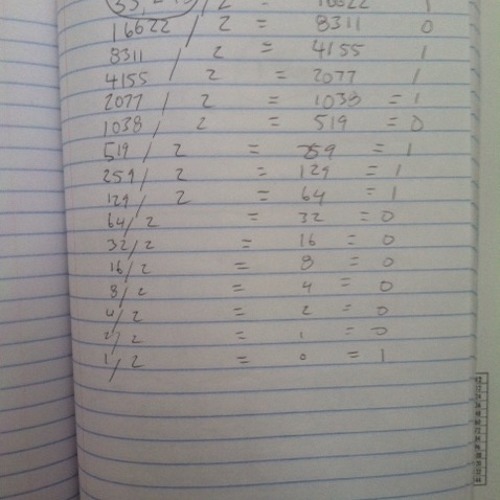 / 2 = 16622 1
16622 / 2 = 8311 0
8311 / 2 = 4155 1
4155 / 2 = 2077 1
2077 / 2 = 1038 = 1
1038 / 2 = 519 = 0
519 / 2 = 259 = 1
259 / 2 = 129 = 1
129 / 2 = 64 = 1
64/2 = 32 = 0
32/2 = 16 = 0
16/2 = 8 = 0
8/2 = 4 = 0
4/2 = 2 = 0
2/2 = 1 = 0
1/2 = 0 = 1